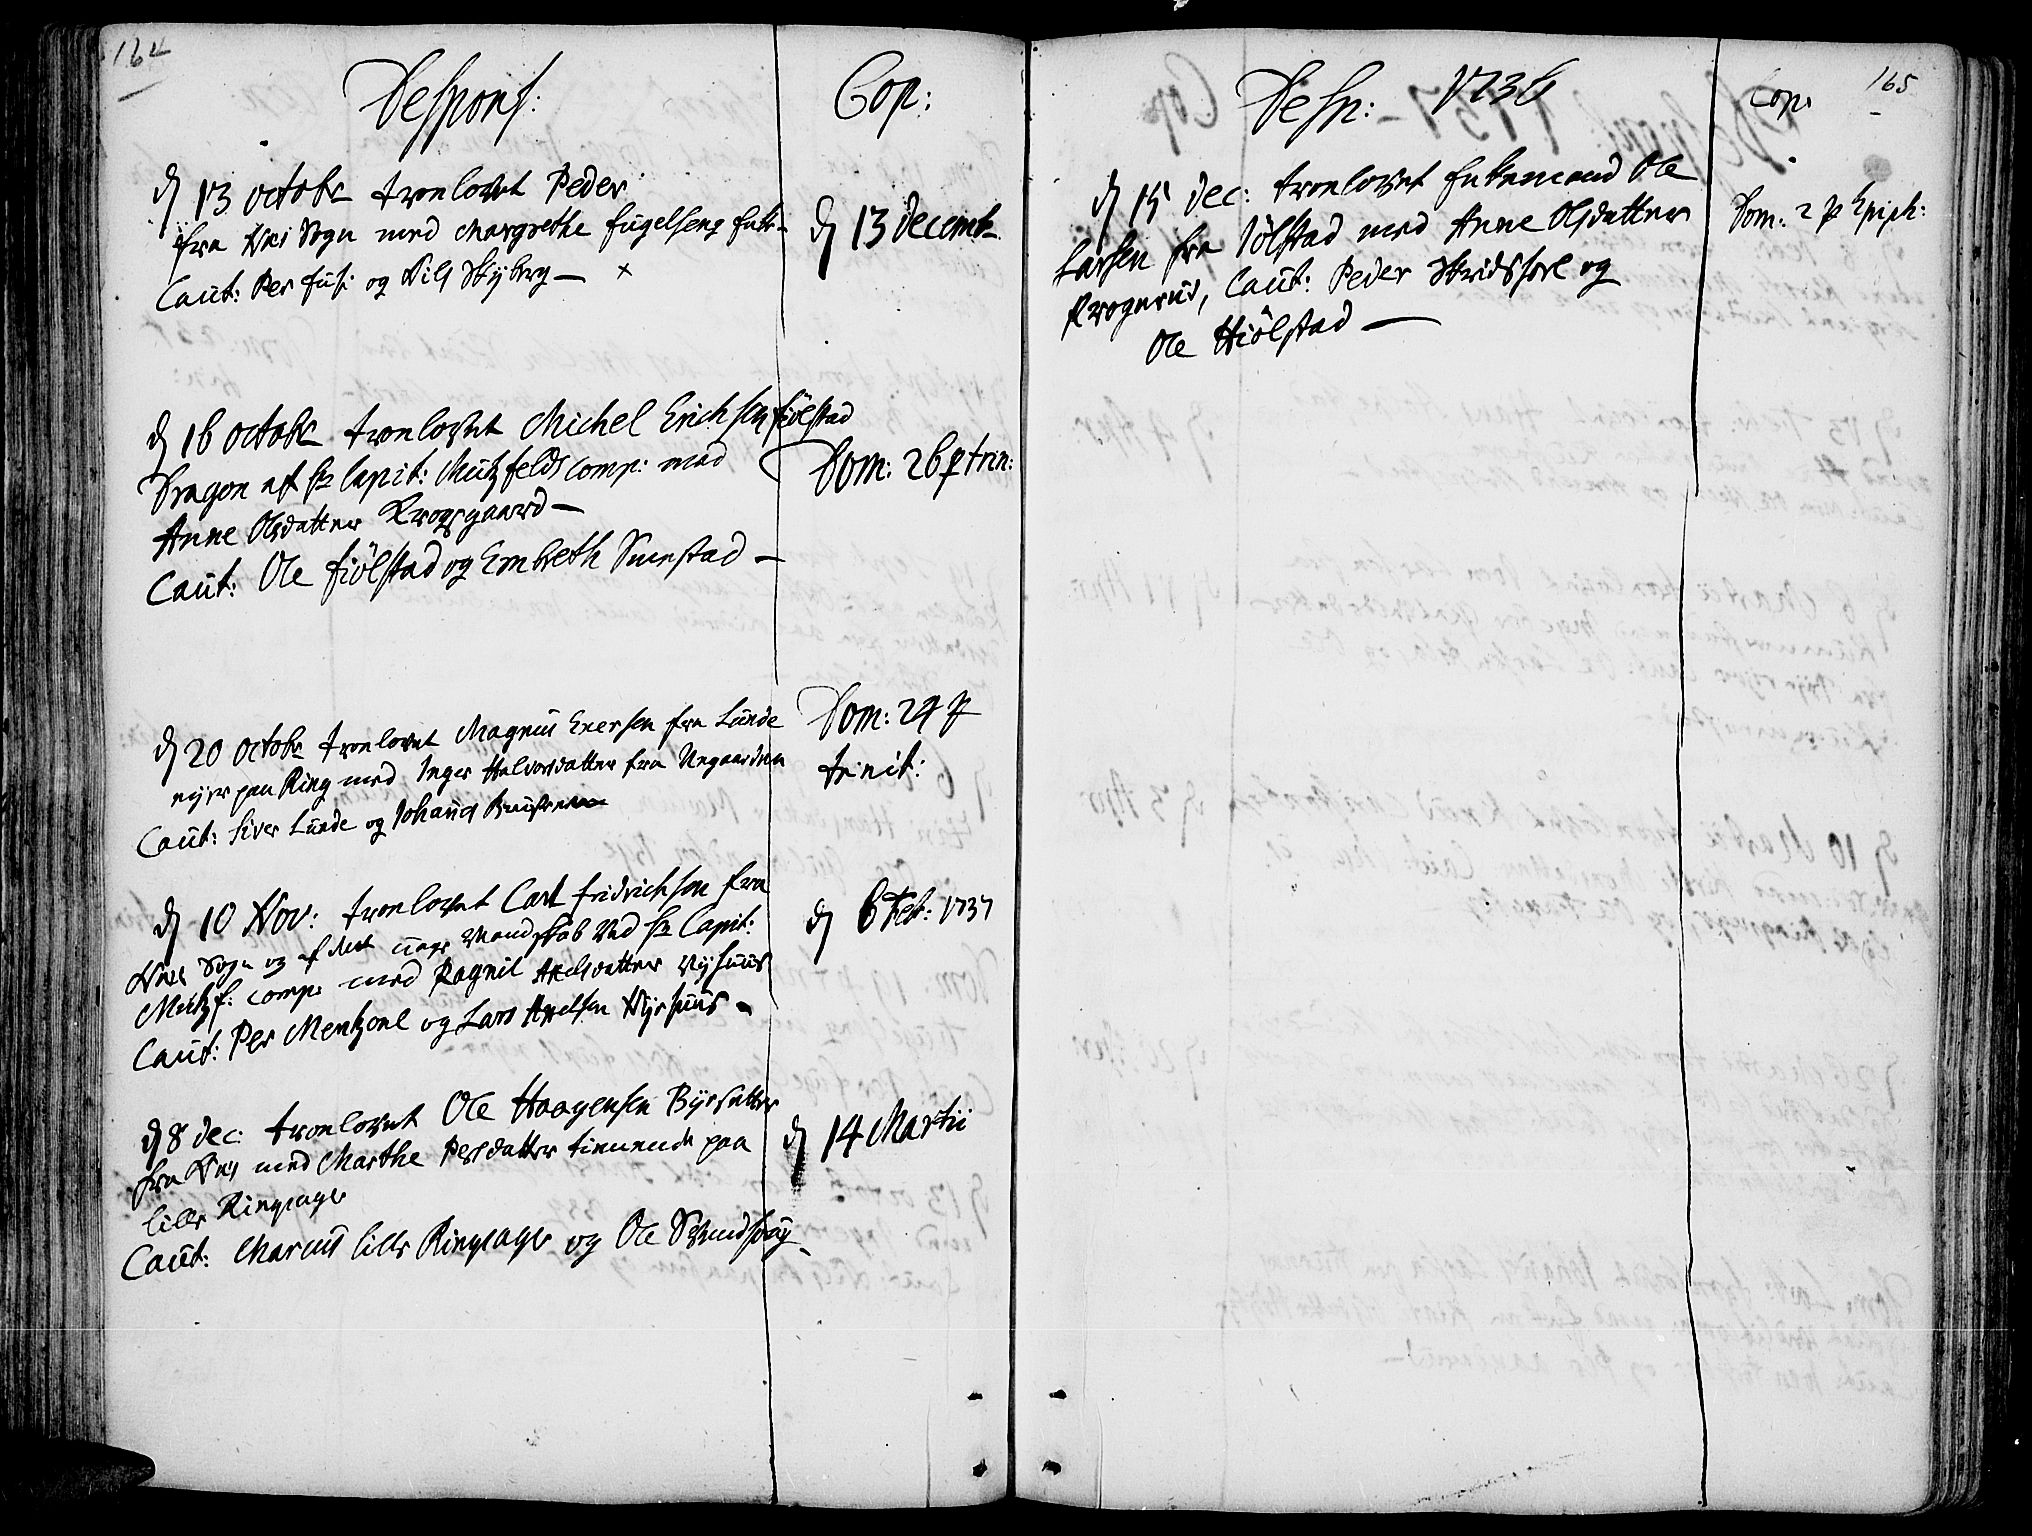 164
Despons:
Cop:
d 13 octobr trolovet Peder
fra Næs Sogn med Margrethe Fugelseng
Caut: Per Fus: og Nils Skyberg — x
d 13 Decemb
d 16 octobr trolovet Michel Erichsen Fiölstad
Dragon af Hr Capit: Mützfelds Comp: med
Anne Olsdatter Krogsgaard —
Caut: Ole Fiölstad og Embreth Smestad —
Dom: 26 p trin:
d 20 octobr trolovet Magnus Enersen fra Lunde
paa Ring med Inger Halvorsdatter fra
Caut: Siver Lunde og Johannes
Dom: 24 p
trinit:
d 10 Nov: trolovet Carl Fridrichsen fra
Næs Sogn og af det unge Mandskab ved Hr Capit:
Mützf: Comp: med Ragnil Axelsdatter Nyhuus
Caut: Per Mentzone og Lars Axelsen Nyehuus —
d 6 Feb: 1737
d 8 dec: trolovet Ole Haagensen
fra Næs med Marthe Persdatter tienende paa
lille Ringsager
Caut: Marcus lille Ringsager og Ole
d 14 Martii
Desp: 1736
Cop:
165
d 15 dec: trolovet Enkemand Ole
Larsen fra Jölstad med Anne Olsdatter
Krogerud, Caut: Peder Skridshoel og
Ole Hiölstad —
Dom: 2 p Epiph: